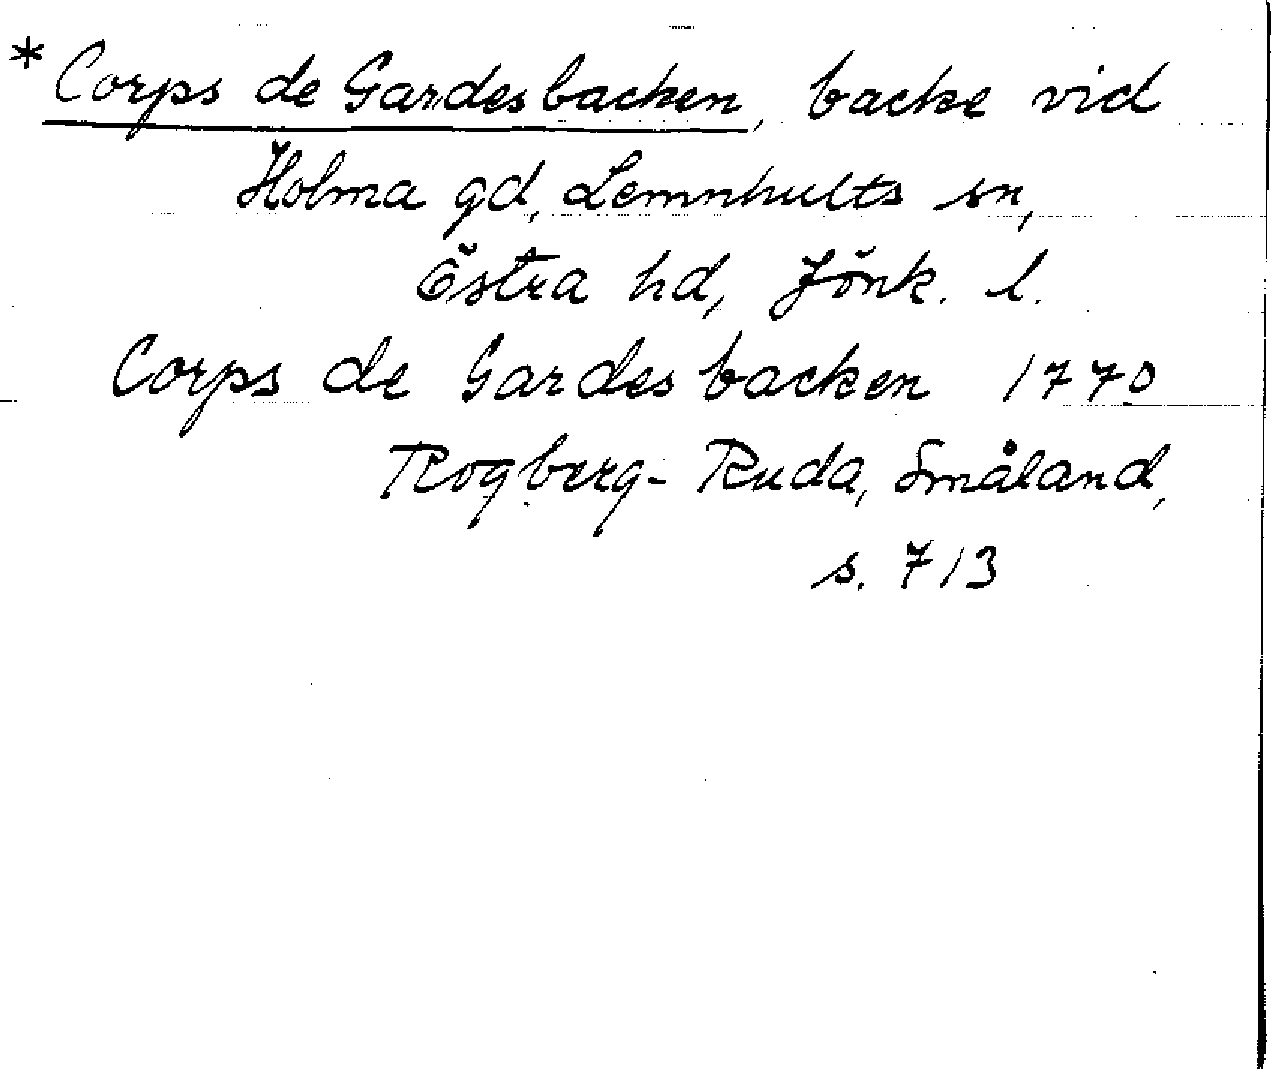 * Corps de Gardesbacken, backe vid
Holma gd, Lemnhults sn,
Östra hd, Jönk. l.
Corps de Gardesbacken 1770
Rogberg-Ruda, Småland,
s. 713